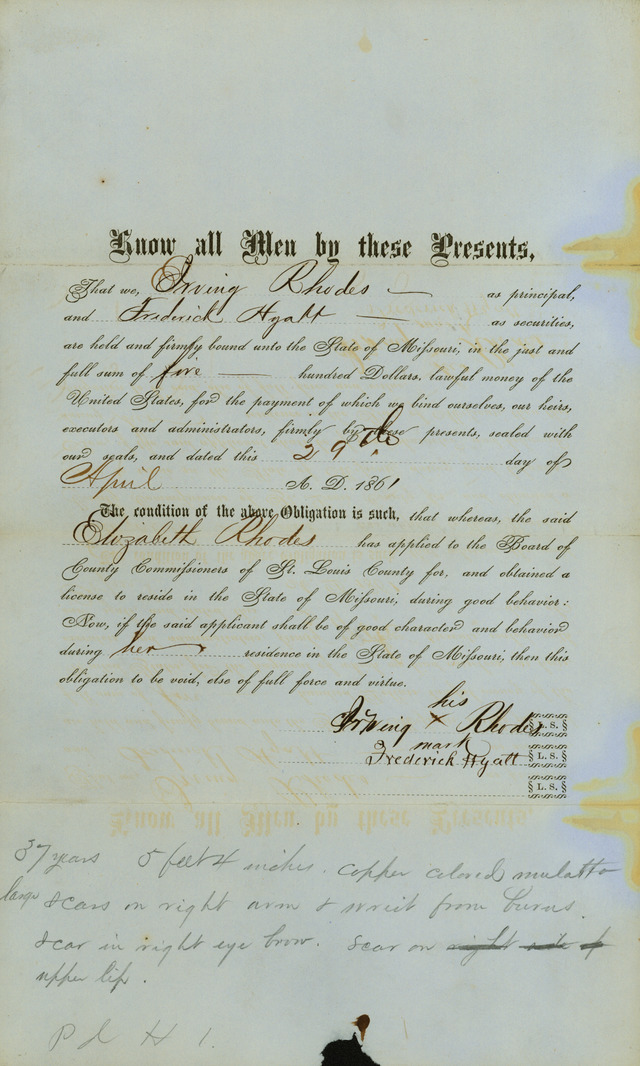 Know all Men by these Presents,
That we, Irving Rhodes — as principal,
and Frederick Hyatt — as securities,
are held and firmly bound unto the State of Missouri, in the just and
full sum of five — hundred Dollars, lawful money of the
United States, for the payment of which we bind ourselves, our heirs,
executors and administrators, firmly by these presents, sealed with
our seals, and dated this 29th day of
April A. D. 1861
The condition of the above Obligation is such, that whereas, the said
Elizabeth Rhodes has applied to the Board of
County Commissioners of St. Louis County for, and obtained a
license to reside in the State of Missouri, during good behavior:
Now, if the said applicant shall be of good character and behavior
during her residence in the State of Missouri, then this
obligation to be void, else of full force and virtue.
his
Irwing x Rhodes L. S.
mark
Frederick Hyatt L. S.
L. S.
37 years 5 feet 4 inches. copper colored mulatto
large scars on right arm & wrist from burns.
scar in right eye brow. scar on right side of
upper lip.
Pd H 1.